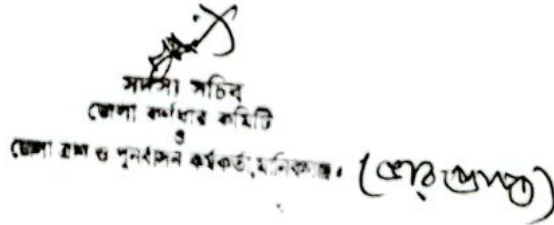 সদস্য সচিব
জেলা কর্ণধার কমিটি
ও
জেলা ত্রাণ ও পুনর্বাসন কর্মকর্তা, মানিকগঞ্জ। (ভারপ্রাপ্ত)